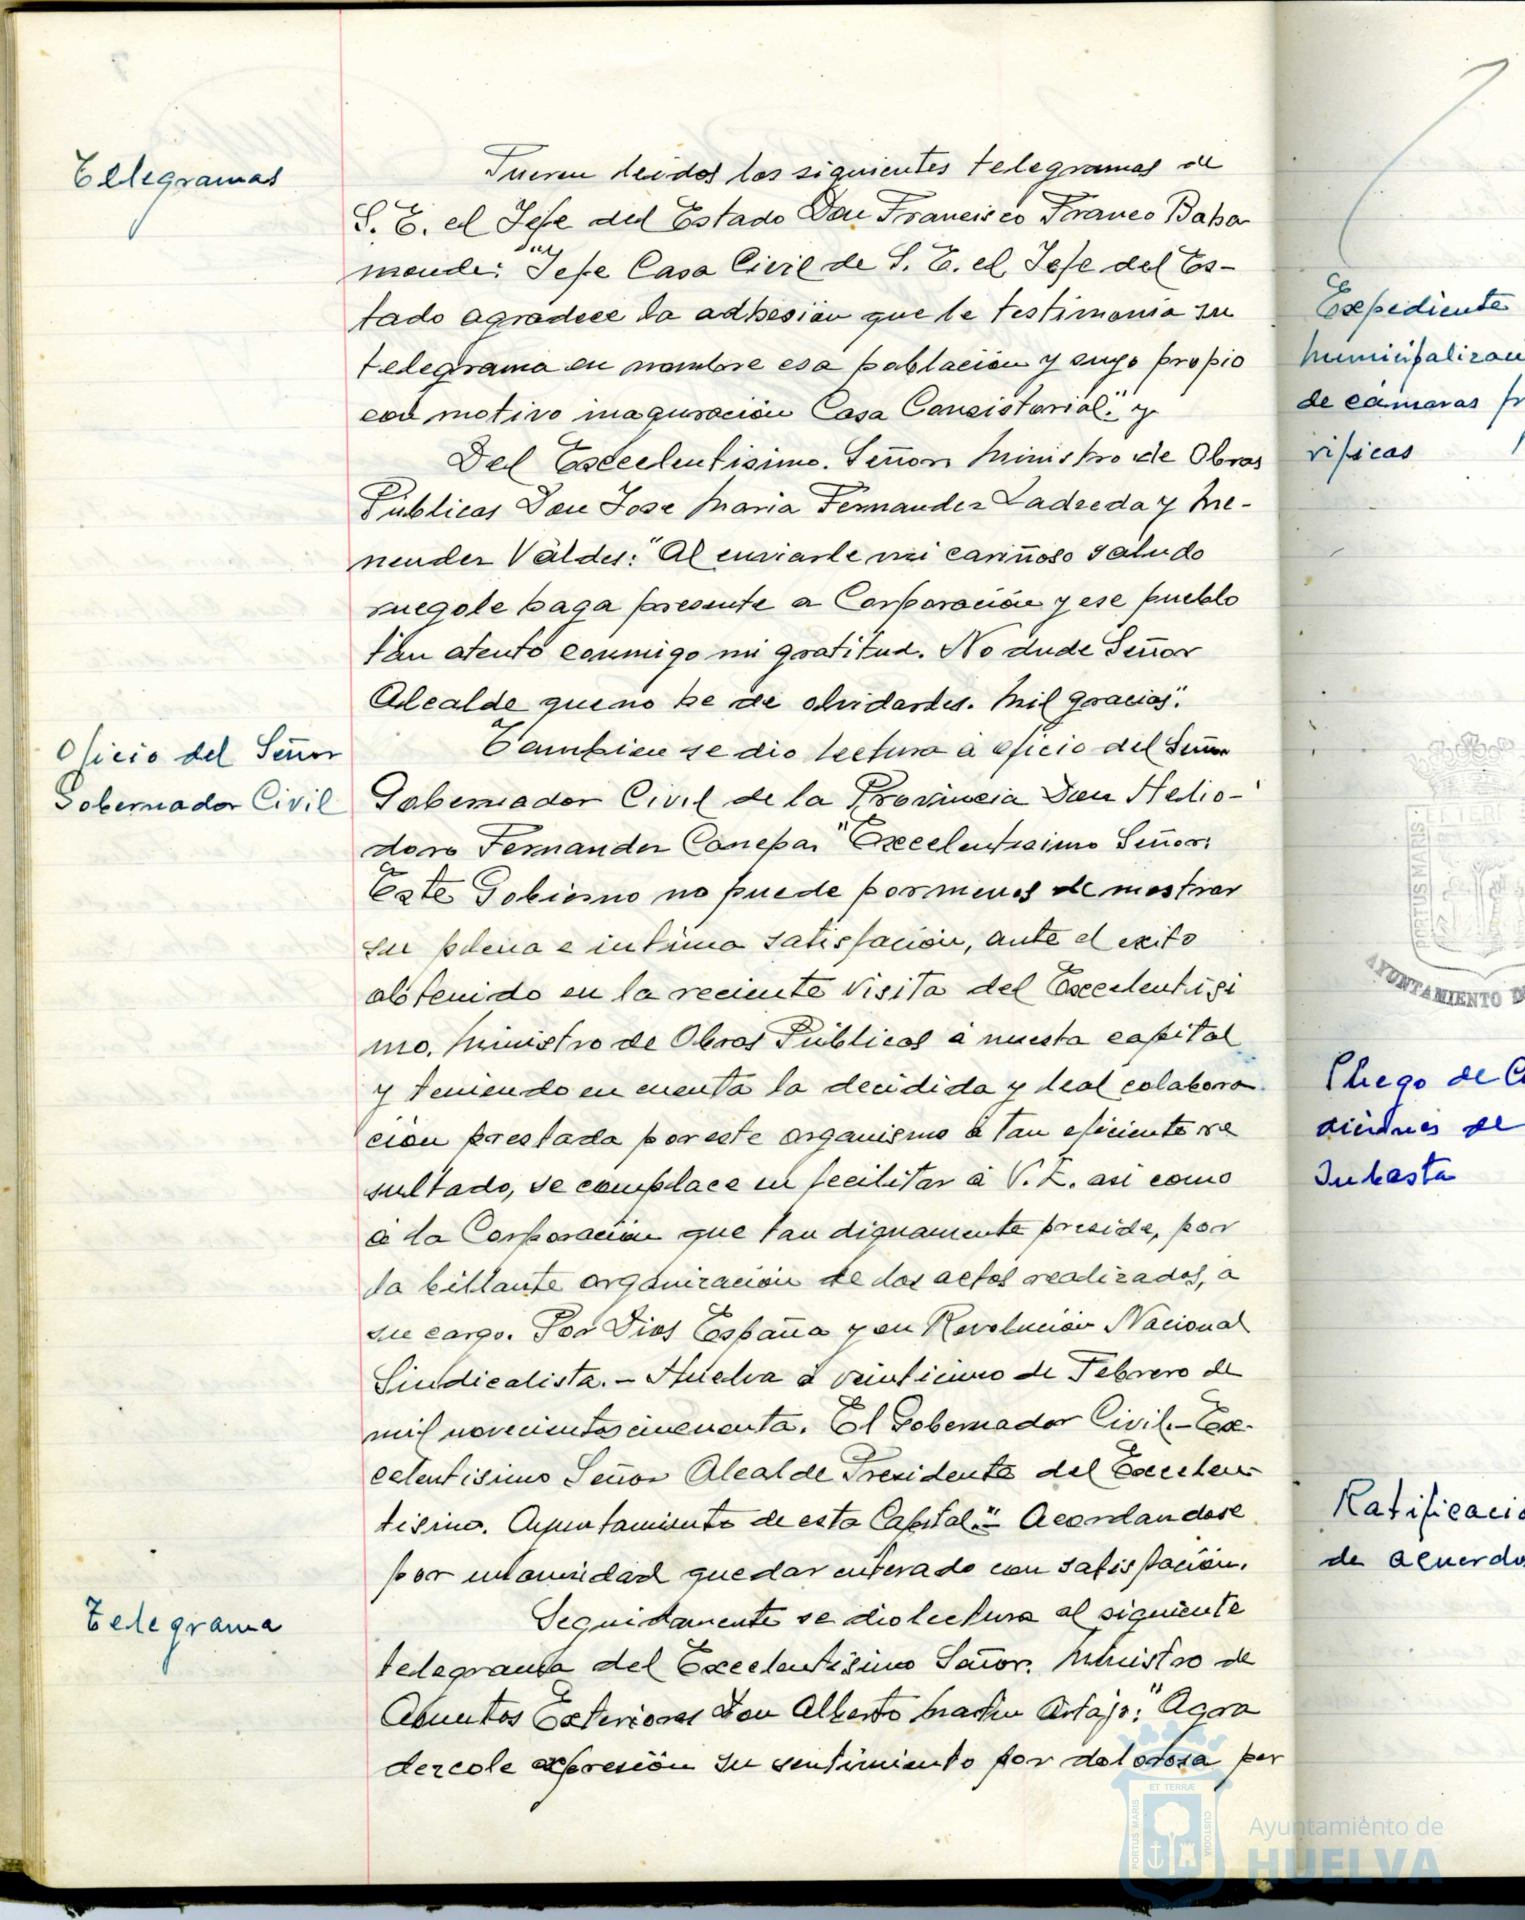 Telegramas
Fueron leidos los siguientes telegramas de
S. E. el Jefe del Estado Don Francisco Franco Baha
monde: "Jefe Casa Civil de S. E. el Jefe del Es-
tado agradece la adhesión que le testimonia su
telegrama en nombre esa población y suyo propio
con motivo inaguración Casa Consistorial." y
Del Excelentisimo. Señor Ministro de Obras
Públicas Don Jose Maria Fernandez Ladreda y Me-
nendez Váldes: "Al enviarle mi cariñoso saludo
ruegole haga presente a Corporación y ese pueblo
tan atento conmigo mi gratitud. No dude Señor
Alcalde que no he de olvidarles. Mil gracias".
Oficio del Señor
Gobernador Civil
Tambien se dio lectura á oficio del Señor
Gobernador Civil de la Provincia Don Helio-
doro Fernandez Canepa. "Excelentisimo Señor:
Este Gobierno no puede por menos de mostrar
su plena e intima satisfación, ante el exito
obtenido en la reciente visita del Excelentisi
mo. Ministro de Obras Públicas á nuesta capital
y teniendo en cuenta la decidida y leal colabora
ción prestada por este organismo á tan eficiente re
sultado, se complace en fecilitar á V. E. asi como
á la Corporación que tan dignamente preside, por
la billante organización de los actos realizados, a
su cargo. Por Dios España y su Revolución Nacional
Sindicalista.- Huelva á veinticinco de Febrero de
mil novecientos cincuenta. El Gobernador Civil.- Ex-
celentisimo Señor Alcalde Presidente del Excelen-
tisimo. Ayuntamiento de esta Capital."- Acordandose
por unanimidad quedar enterado con satisfación.
Telegrama
Seguidamente se dio lectura al siguiente
telegrama del Excelentisimo Señor. Ministro de
Asuntos Exteriores Don Alberto Martin Artajo: "Agra
dezcole expresión su sentimiento por dolorosa per
Expediente
Municipalizaci
de cámaras fr
rificas
PORTUS MARIS
AYUNTAMIENTO D
Pliego de Co
diciones de
Subasta
Ratificacio
de acuerdo
ET TERRÆ
PORTUS MARIS
CUSTODIA
Ayuntamiento de
HUELVA